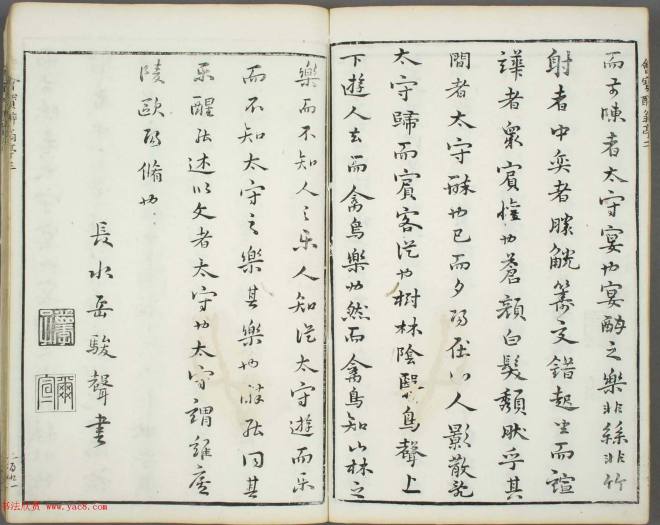 而前陳者太守宴也宴酣之樂非絲非竹
射者中奕者勝觥籌交錯起坐而諠
譁者衆賓懽也蒼顔白髮頽然乎其
間者太守醉也已而夕陽在山人影散亂
太守歸而賓客從也樹林陰翳鳥聲上
下遊人去而禽鳥樂也然而禽鳥知山林之
樂而不知人之樂人知從太守遊而樂
而不知太守之樂其樂也醉能同其
樂醒能述以文者太守也太守謂誰廬
陵歐陽脩也
長水岳駿聲書
书法欣赏 www.yac8.com